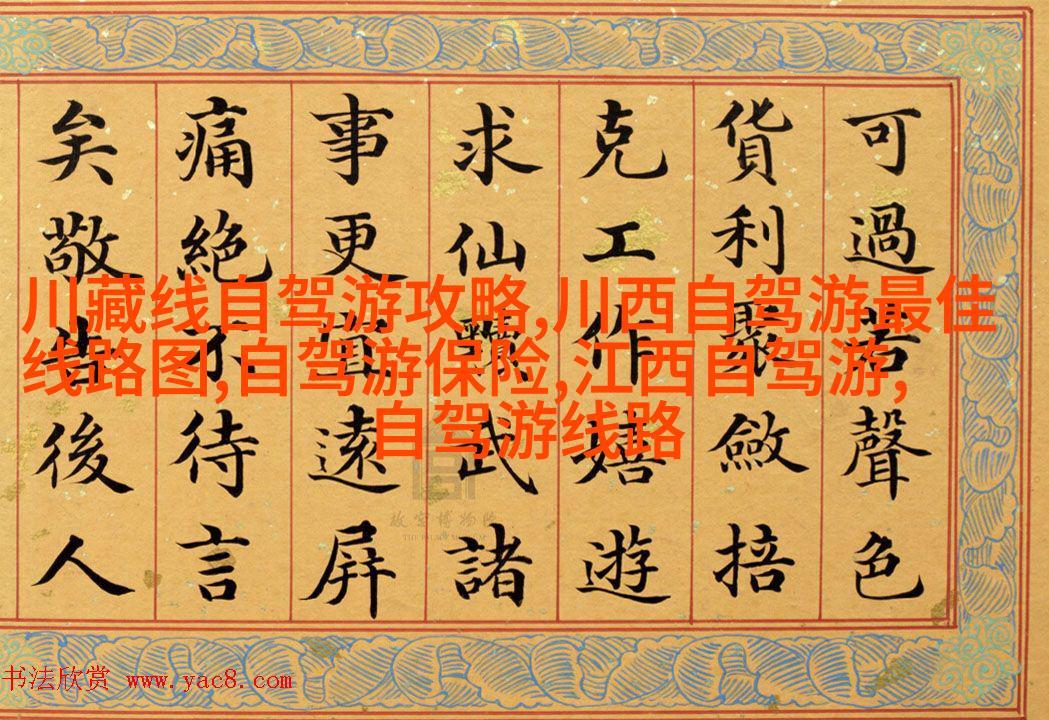 可過若聲色
貨利聚斂掊
克工作嬉遊
求仙黷武諸
事更宜遠屏
痛絕不待言
矣敬告後人
川藏线自驾游攻略,川西自驾游最佳
线路图,自驾游保险,江西自驾游,
自驾游线路
故宫博物院
THE PALACE MUSEUM
书法欣赏 www.yac8.com